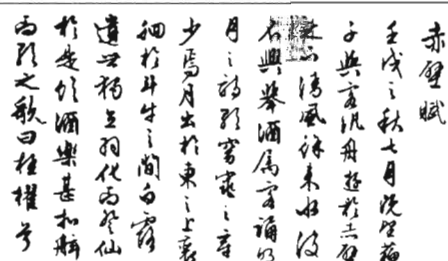 赤壁賦
壬戌之秋七月既望蘇
子與客汎舟遊於赤壁
之下清風徐來水波
不興舉酒屬客誦明
月之詩歌窈窕之章
少焉月出於東之上裴
徊於斗牛之間白露
遺世獨立羽化而登仙
於是飲酒樂甚扣舷
而歌之歌曰桂櫂兮